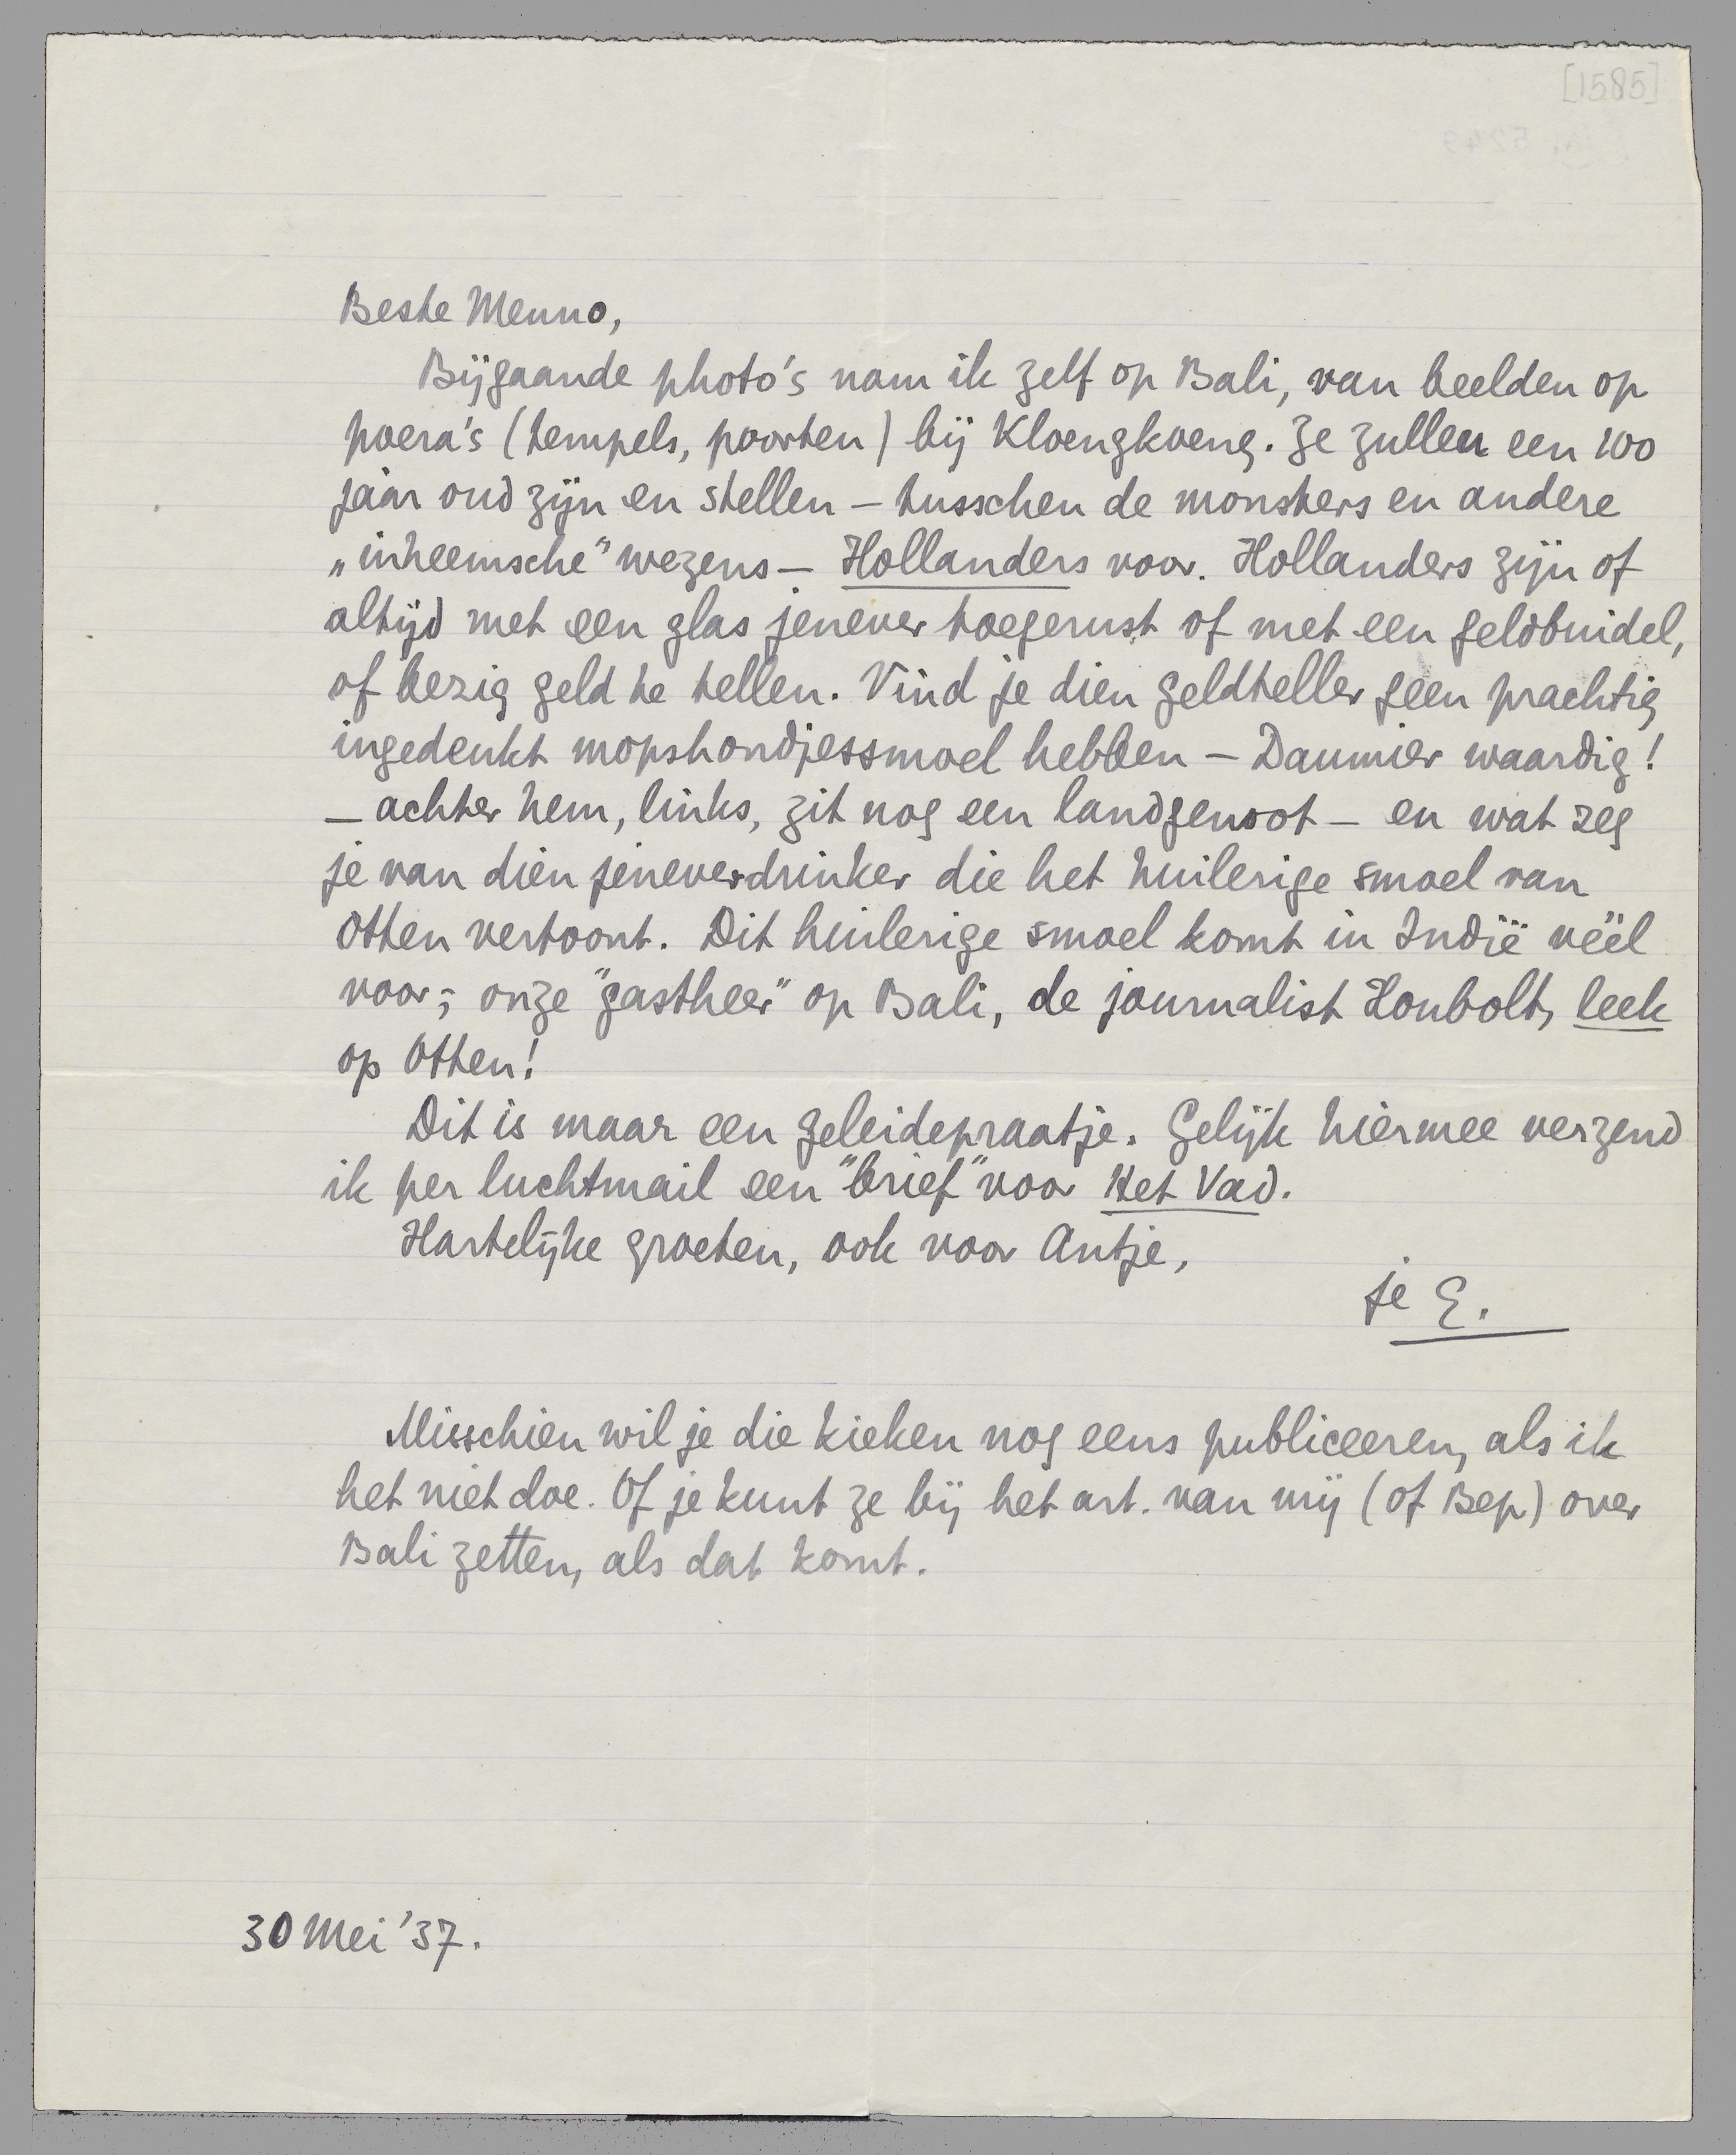 [1585]
Beste Menno,
Bijgaande photo's nam ik zelf op Bali, van beelden op
poera's (tempels, poorten) bij Kloengkoeng. Ze zullen een 100
jaar oud zijn en stellen – tusschen de monsters en andere
„inheemsche" wezens – Hollanders voor. Hollanders zijn of
altijd met een glas jenever toegerust of met een geldbuidel,
of bezig geld te tellen. Vind je dien geldteller geen prachtig
ingedeukt mopshondjessmoel hebben – Daumier waardig!
– achter hem, links, zit nog een landgenoot – en wat zeg
je van dien jeneverdrinker die het huilerige smoel van
Otten vertoont. Dit huilerige smoel komt in Indië véél
voor; onze "gastheer" op Bali, de journalist Houbolt, leek
op Otten!
Dit is maar een geleidepraatje. Gelijk hiermee verzend
ik per luchtmail een "brief" voor Het Vad.
Hartelijke groeten, ook voor Antje,
je E.
Misschien wil je die kieken nog eens publiceeren, als ik
het niet doe. Of je kunt ze bij het art. van mij (of Bep) over
Bali zetten, als dat komt.
30 Mei '37.